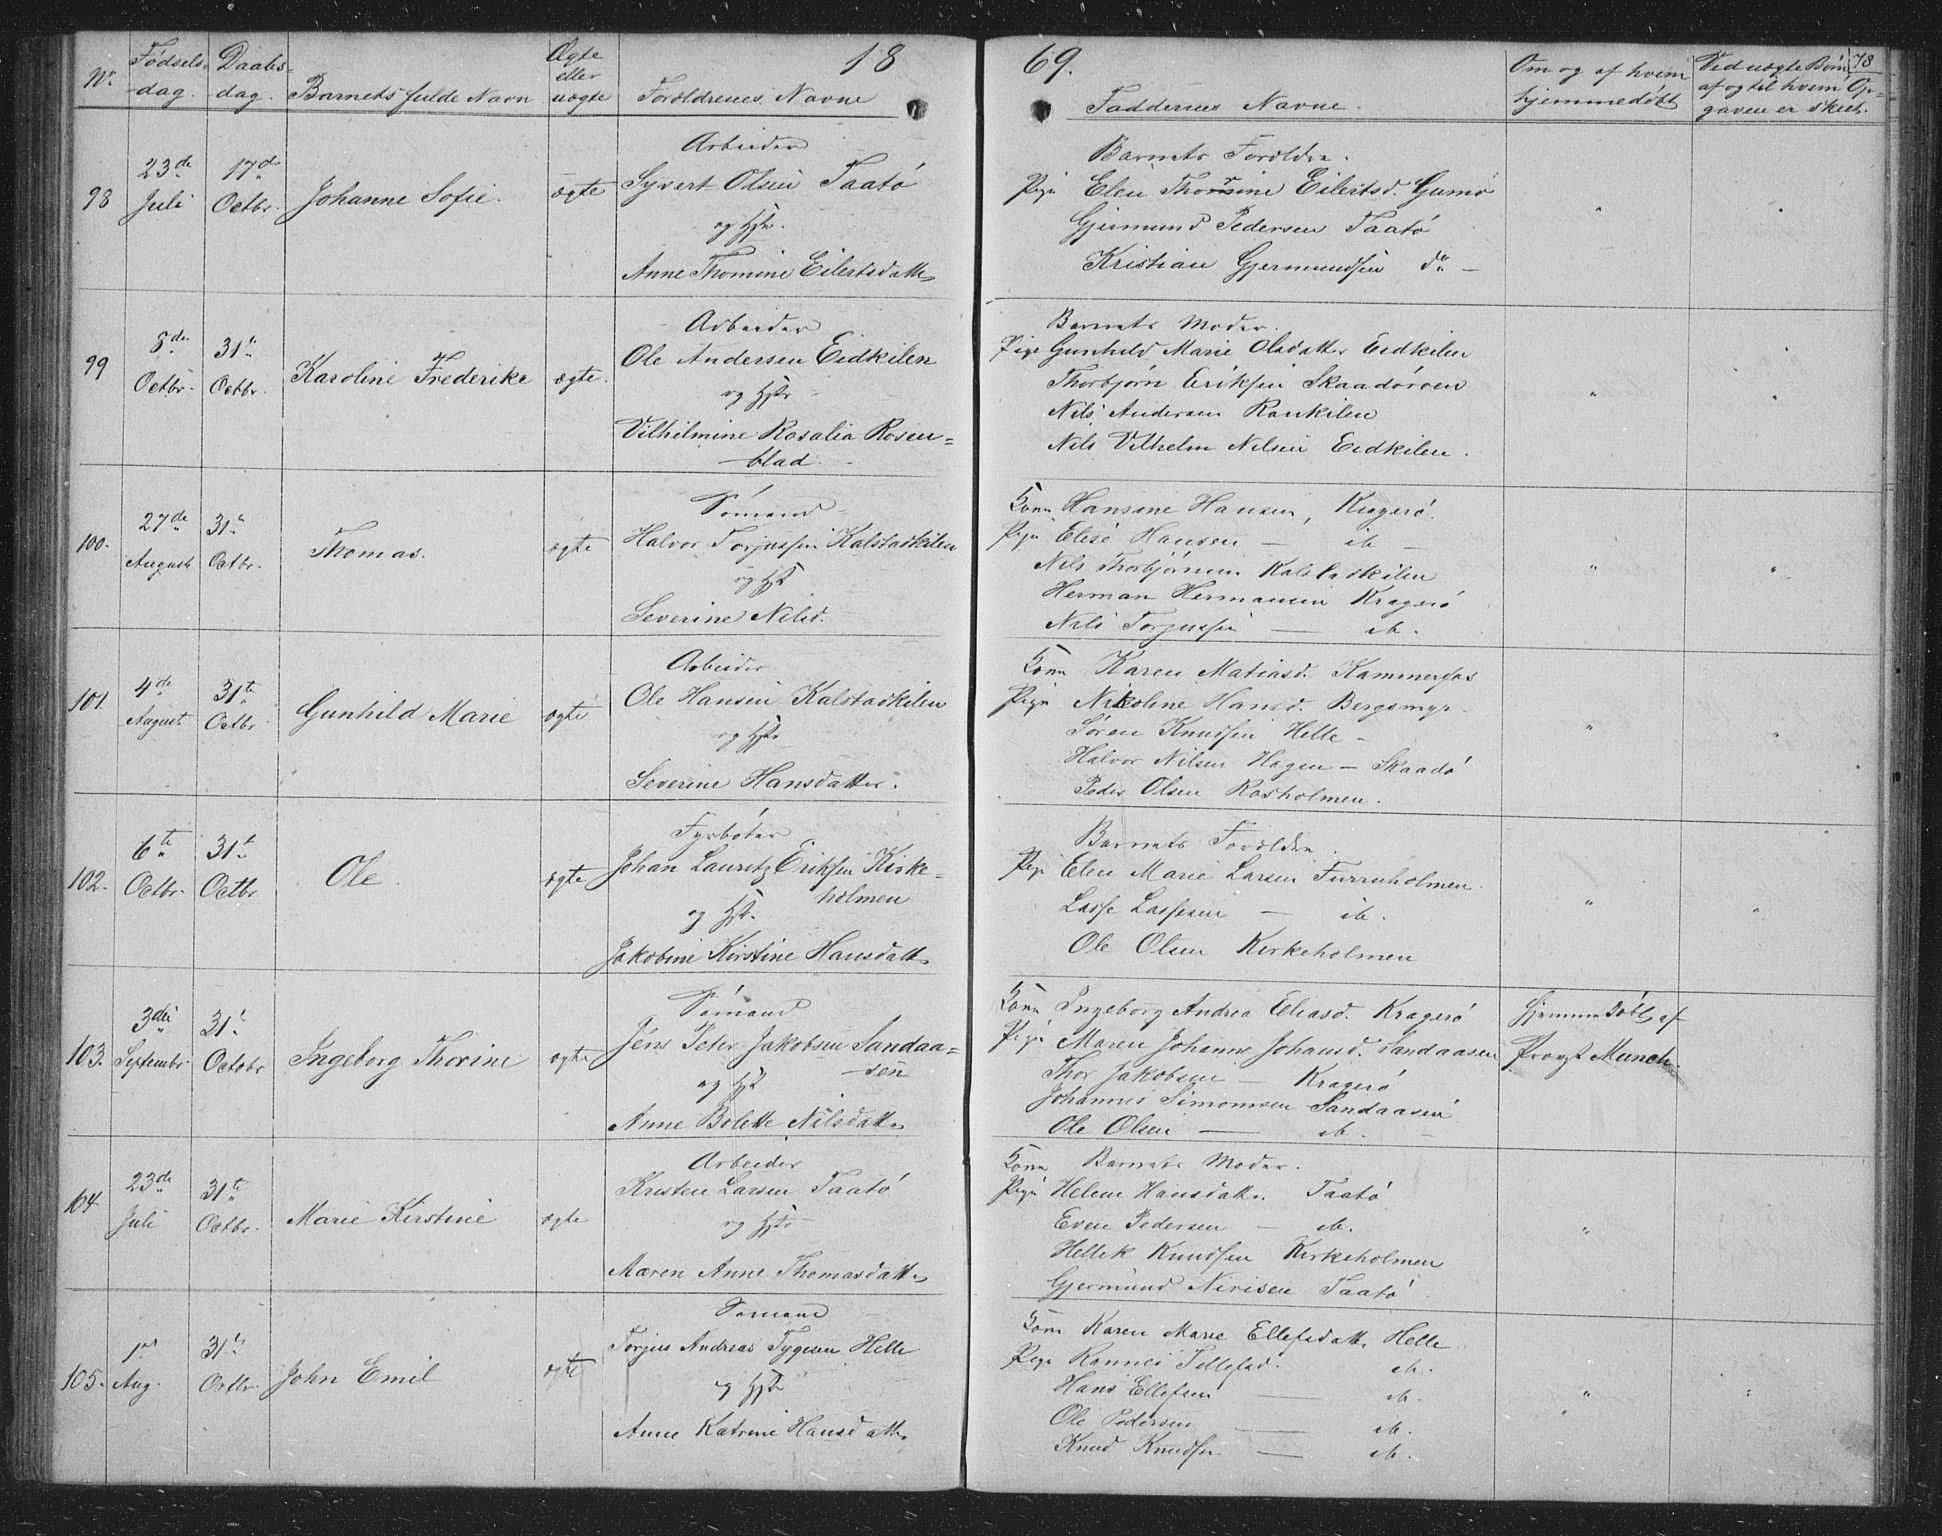 1869.
78
No. Fødselsdag. Daabsdag. Barnets fulde Navn Ægte eller uægte Forældrenes Navne Faddernes Navne. Om og af hvem hjemmedøbt Ved uægte Børn af og til hvem Opgaven er skeet.
98 23de Juli 17de Octbr. Johanne Sofie. ægte
Arbeider
Syvert Olsen Taatø
og Hstr.
Anne Thomine Eilertsdatter
Barnets Forældre.
Pige Elen Thorsine Eilertsd. Gumø
Gjermund Pedersen Taatø
Kristian Gjermundsen do —
99 8de Octbr. 31te Octbr. Karoline Frederike ægte.
Arbeider
Ole Andersen Eidkilen
og Hstr
Vilhelmine Rosalia Rosen=
blad.
Barnets Moder.
Pige Gunhild Marie Olsdatter Eidkilen
Thorbjørn Eriksen Skaadørven
Nils Andersen Rankilen
Nils Vilhelm Nilsen Eidkilen.
100. 27de August 31te Octbr. Thomas. ægte
Sømand
Halvor Torjussen Kalstadkilen
og Hst
Severine Nilsd.
Kone Hansine Hansen, Kragerø.
Pige Elise Hansen — ib —
Nils Thorbjørnsen Kalstadkilen
Herman Hermansen Kragerø
Nils Torjussen — ib.
101. 4de August 31te Octbr. Gunhild Marie ægte
Arbeider
Ole Hansen Kalstadkilen
og Hstr
Severine Hansdatter.
Kone Karen Matiasd. Kammerfos
Pige Nikoline Hansd. Bergsmyr.
Søren Knudsen Helle —
Halvor Nilsen Hagen — Skaadø
Peder Olsen Rosholmen.
102. 6te Octbr. 31te Octbr Ole. ægte
Fyrbøter
Johan Lauritz Eriksen Kirke=
holmen
og Hst.
Jakobine Kirstine Hansdatter
Barnets Forældre.
Pige Elen Marie Larsen Furruholmen.
Lasse Lassesen — ib.
Ole Olsen Kirkeholmen
103. 3die Septembr. 31te Octobr Ingeborg Thorine ægte
Sømand
Jens Peter Jakobsen Sandaa=
sen
og Hst
Anne Bolette Nilsdatter
Kone Ingeborg Andrea Eliasd. Kragerø
Pige Maren Johanne Johansd. Sandaasen
Thor Jakobsen — Kragerø
Johannes Simonsen Sandaasen
Ole Olsen — ib.
Hjemmedøbt af
Provst Munch.
104 23de Juli 31te Octbr. Marie Kirstine ægte
Arbeider
Kristen Larsen Taatø
og Hstr
Maren Anne Thomasdatter
Kone Barnets Moder.
Pige Helene Hansdatter. Taatø
Even Pedersen — ib.
Hellik Knudsen Kirkeholmen
Gjermund Nirisen Taatø
105. 1ste Aug. 31te Octbr. John Emil ægte
Sømand
Torjus Andreas Tygesen Helle
og Hstr
Anne Katrine Hansdatter
Kone Karen Marie Ellefsdatter Helle
Pige Kannes Tellefsd. ib.
Hans Ellefsen — ib.
Ole Pedersen — ib.
Knud Knudsen — ib.